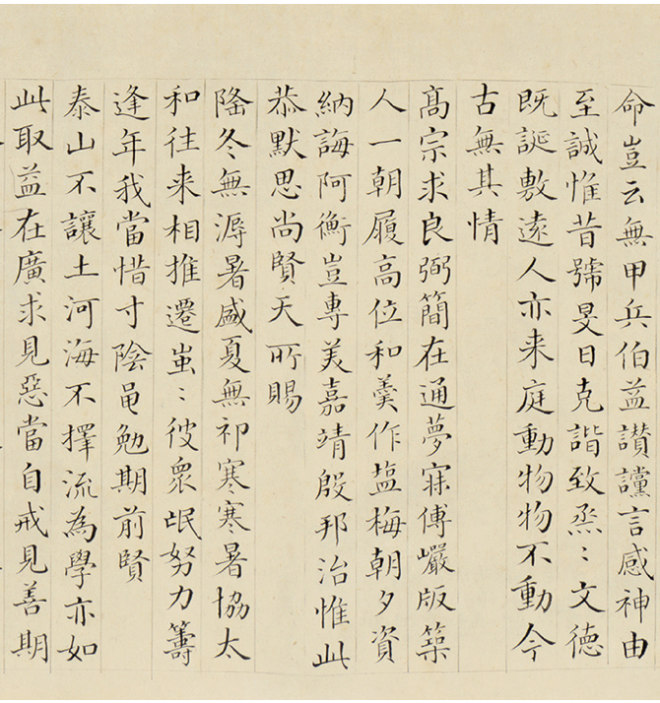 命豈云無甲兵伯益讃讜言感神由
至誠惟昔號旻日克諧致烝〻文德
既誕敷遠人亦来庭動物物不動今
古無其情
高宗求良弼簡在通夢寐傅巖版築
人一朝履高位和羹作塩梅朝夕資
納誨阿衡豈專美嘉靖殷邦治惟此
恭默思尚賢天所賜
隆冬無溽暑盛夏無祁寒寒暑協太
和往来相推遷蚩〻彼衆氓努力籌
逢年我當惜寸陰黽勉期前賢
泰山不讓土河海不擇流為學亦如
此取益在廣求見惡當自戒見善期